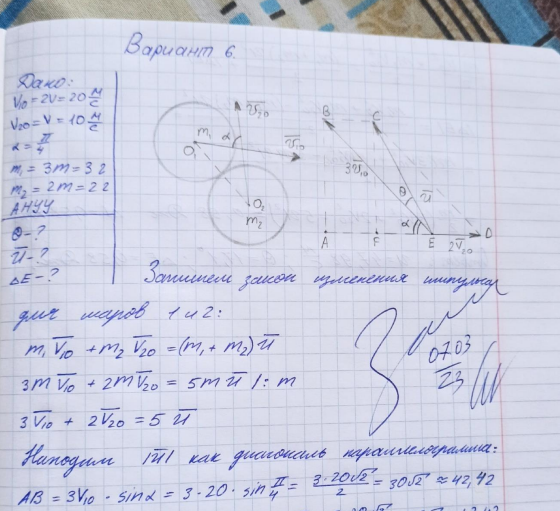 Вариант 6.
Дано:
V₁₀ = 2V = 20 м/с
V₂₀ = V = 10 м/с
α = π/4
m₁ = 3m = 3 г
m₂ = 2m = 2 г
АНУУ
Θ - ?
U̅ - ?
ΔE - ?
V̅₂₀
m₁ α V̅₁₀
O₁
O₂
m₂
B C
3V̅₁₀
Θ U̅
α
A F E 2V̅₂₀ D
Запишем закон изменения импульса
для шаров 1 и 2:
m₁V̅₁₀ + m₂V̅₂₀ = (m₁ + m₂)U̅
3mV̅₁₀ + 2mV̅₂₀ = 5mU̅ /: m
3V̅₁₀ + 2V̅₂₀ = 5U̅
07.03
23
Находим |U̅| как диагональ параллелограмма:
AB = 3V₁₀ · sinα = 3 · 20 · sin π/4 = 3·20√2/2 = 30√2 ≈ 42,42